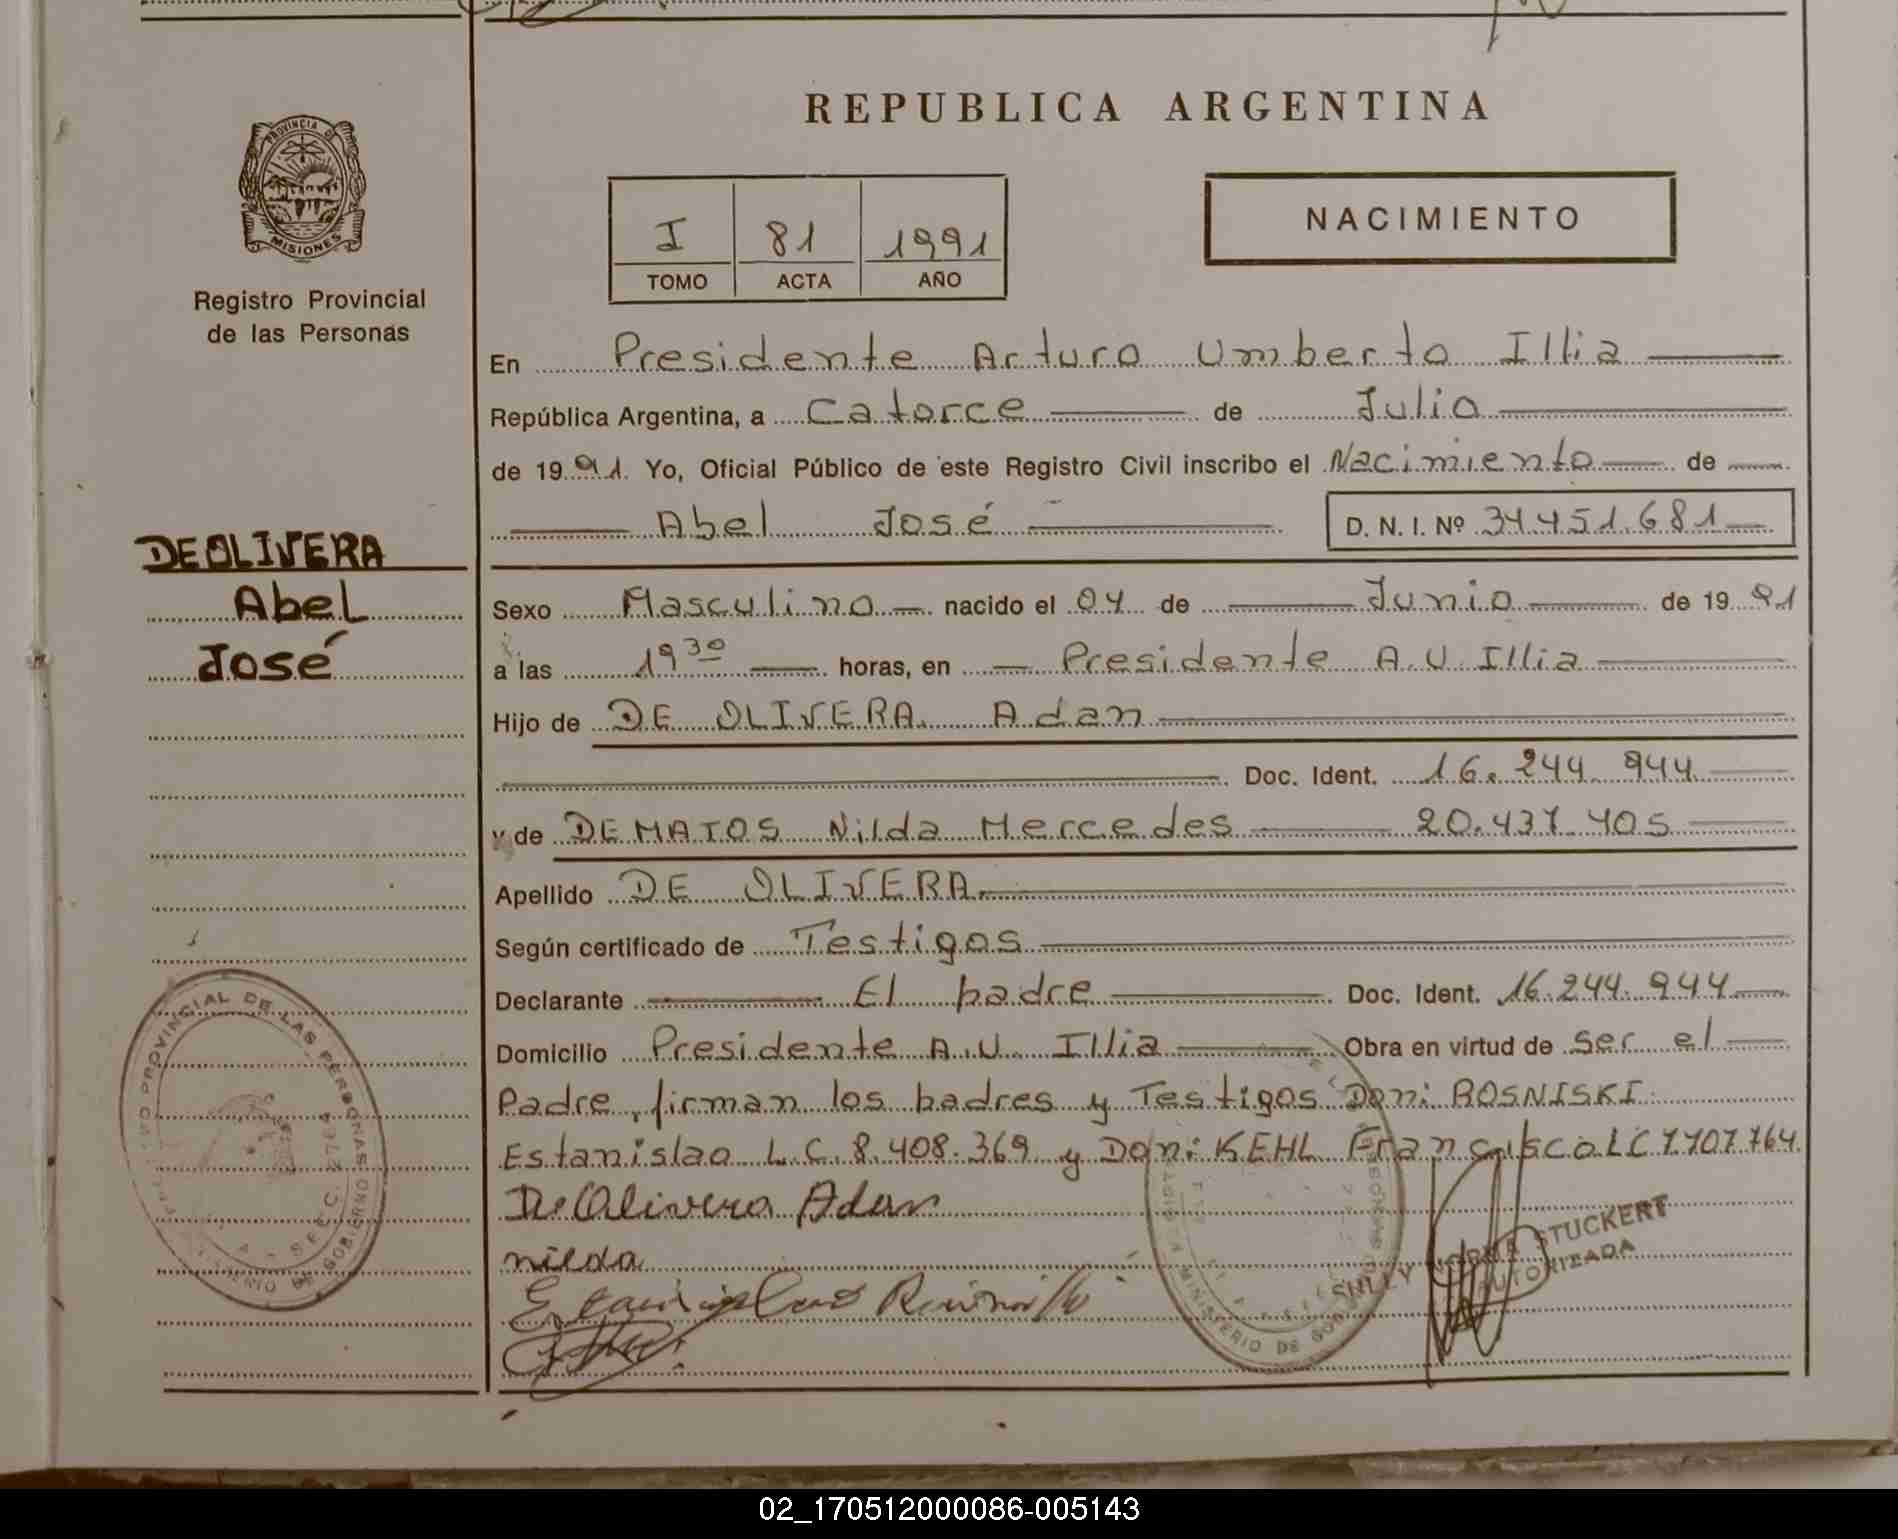 REPUBLICA ARGENTINA
PROVINCIA DE
MISIONES
Registro Provincial
de las Personas
I 81 1991
TOMO ACTA AÑO
NACIMIENTO
En Presidente Arturo Umberto Illia
República Argentina, a Catorce de Julio
de 1991. Yo, Oficial Público de este Registro Civil inscribo el Nacimiento de
Abel José D. N. I. Nº 34.451.681
DEOLIVERA
Abel
José
Sexo Masculino nacido el 04 de Junio de 1991
a las 19 30 horas, en Presidente A.U. Illia
Hijo de DE OLIVERA Adan
Doc. Ident. 16.244.944
y de DEMATOS Nilda Mercedes 20.437.405
Apellido DE OLIVERA
Según certificado de Testigos
Declarante El padre Doc. Ident. 16.244.944
Domicilio Presidente A.U. Illia Obra en virtud de ser el
Padre, firman los padres y Testigos Don: ROSNISKI
Estanislao L.C. 8.408.369 y Don: KEHL Francisco LC 7.707.764
De Olivera Adan
nilda
PROVINCIAL DE LAS PERSONAS
SECC. 2764
MINISTERIO DE GOBIERNO
MINISTERIO DE
NORMA STUCKERT
AUTORIZADA
02_170512000086-005143